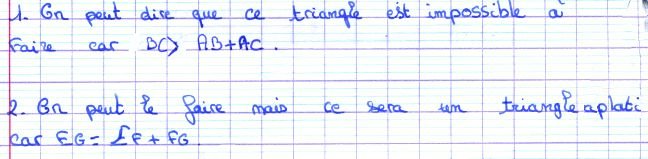 1. On peut dire que ce triangle est impossible à
faire car BC> AB+AC.
2. On peut le faire mais ce sera un triangle aplati
car EG= EF + FG.